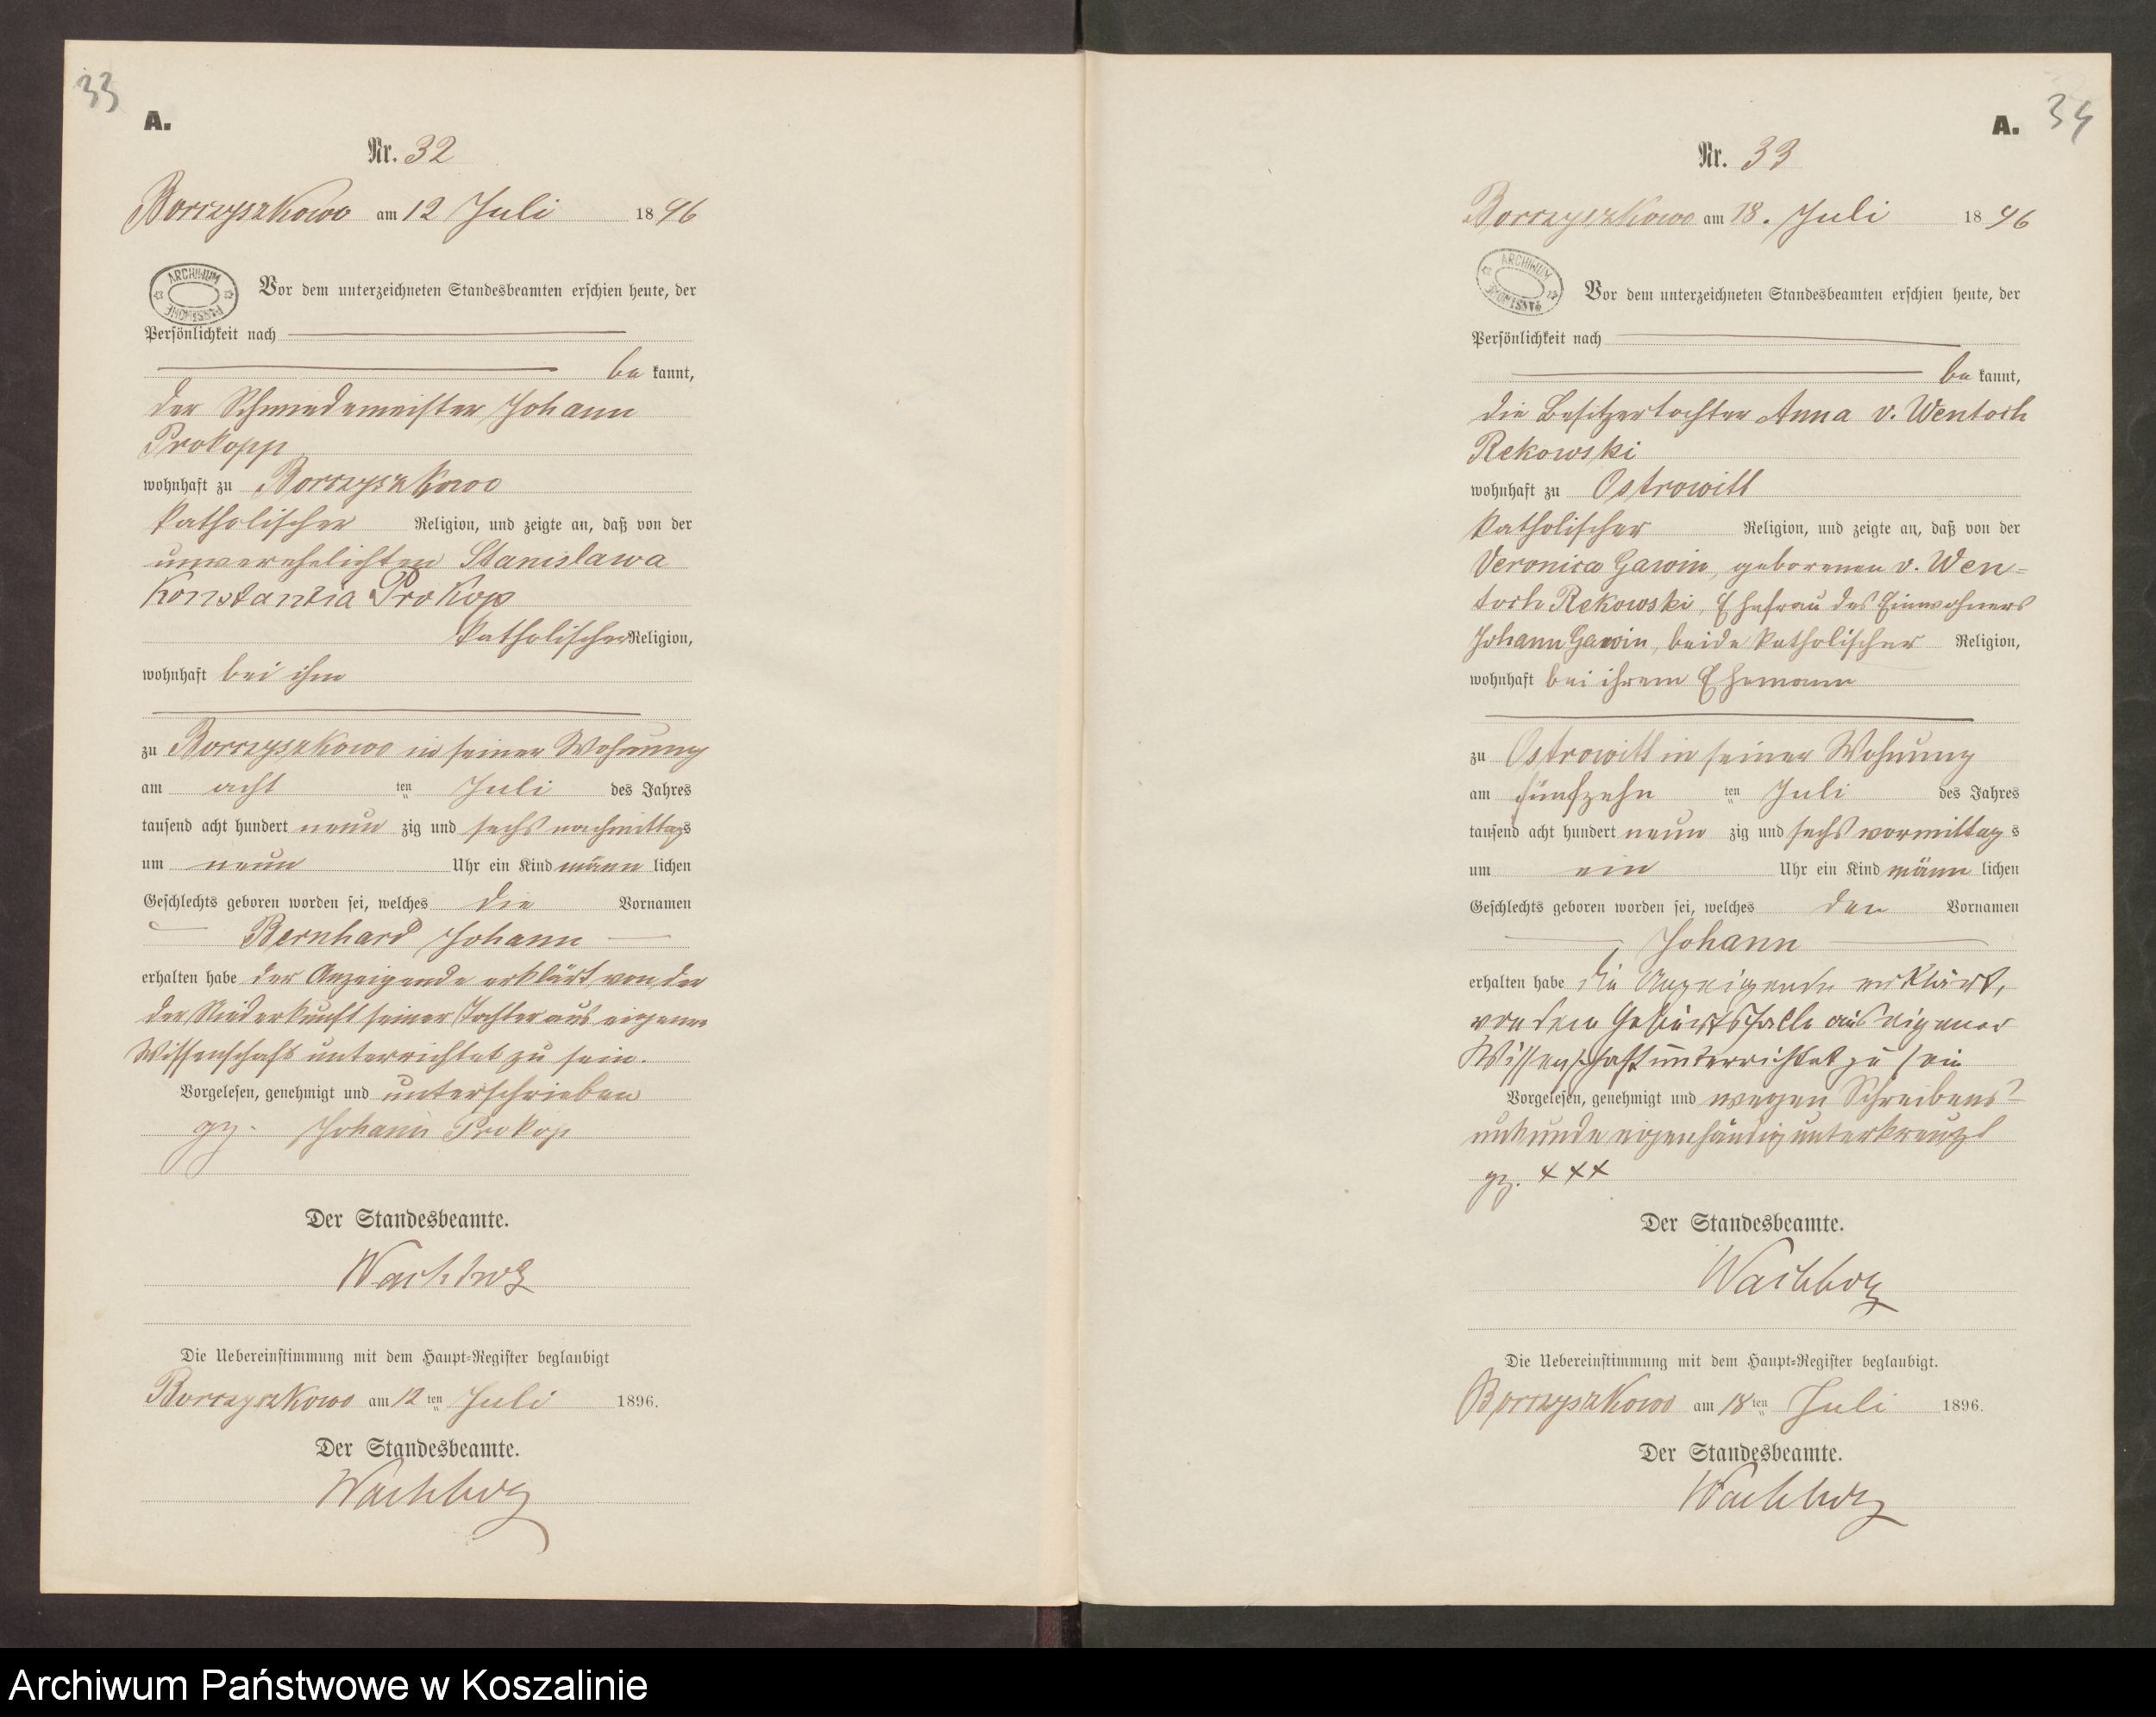 33
A.
Nr. 32
Borczyszkowo am 12 Juli 1896
ARCHIWUM
PAŃSTWOWE
Vor dem unterzeichneten Standesbeamten erschien heute, der
Persönlichkeit nach
be kannt,
der Schmiedemeister Johann
Prokopp
wohnhaft zu Borczyszkowo
katholischer Religion, und zeigte an, daß von der
unverehelichten Stanislawa
Konstantia Prokop
katholischer Religion,
wohnhaft bei ihm
zu Borczyszkowo in seiner Wohnung
am acht ten Juli des Jahres
tausend acht hundert neun zig und sechs nachmittags
um neun Uhr ein Kind männ lichen
Geschlechts geboren worden sei, welches die Vornamen
Bernhard Johann
erhalten habe der Anzeigende erklärt, von der
der Niederkunft seiner Tochter aus eigener
Wissenschaft unterrichtet zu sein.
Vorgelesen, genehmigt und unterschrieben
gz. Johann Prokop
Der Standesbeamte.
Die Uebereinstimmung mit dem Haupt-Register beglaubigt
Borczyszkowo am 12 ten Juli 1896.
Der Standesbeamte.
A. 34
Nr. 33
Borczyszkowo am 18. Juli 1896
ARCHIWUM
PAŃSTWOWE
Vor dem unterzeichneten Standesbeamten erschien heute, der
Persönlichkeit nach
be kannt,
die Besitzertochter Anna v. Wentoch
Rekowski
wohnhaft zu Ostrowitt
katholischer Religion, und zeigte an, daß von der
Veronica Gawin, geborenen v. Wen=
toch Rekowski, Ehefrau des Einwohners
Johann Gawin, beide katholischer Religion,
wohnhaft bei ihrem Ehemann
zu Ostrowitt in seiner Wohnung
am fünfzehn ten Juli des Jahres
tausend acht hundert neun zig und sechs vormittag s
um ein Uhr ein Kind männ lichen
Geschlechts geboren worden sei, welches den Vornamen
Johann
erhalten habe die Anzeigende erklärt,
von dem Geburtsfalle aus eigener
Wissenschaft unterrichtet zu sein
Vorgelesen, genehmigt und wegen Schreibens=
unkunde eigenhändig unterkreuzt
gz. +++
Der Standesbeamte.
Die Uebereinstimmung mit dem Haupt-Register beglaubigt.
Borczyszkowo am 18 ten Juli 1896.
Der Standesbeamte.
Archiwum Państwowe w Koszalinie